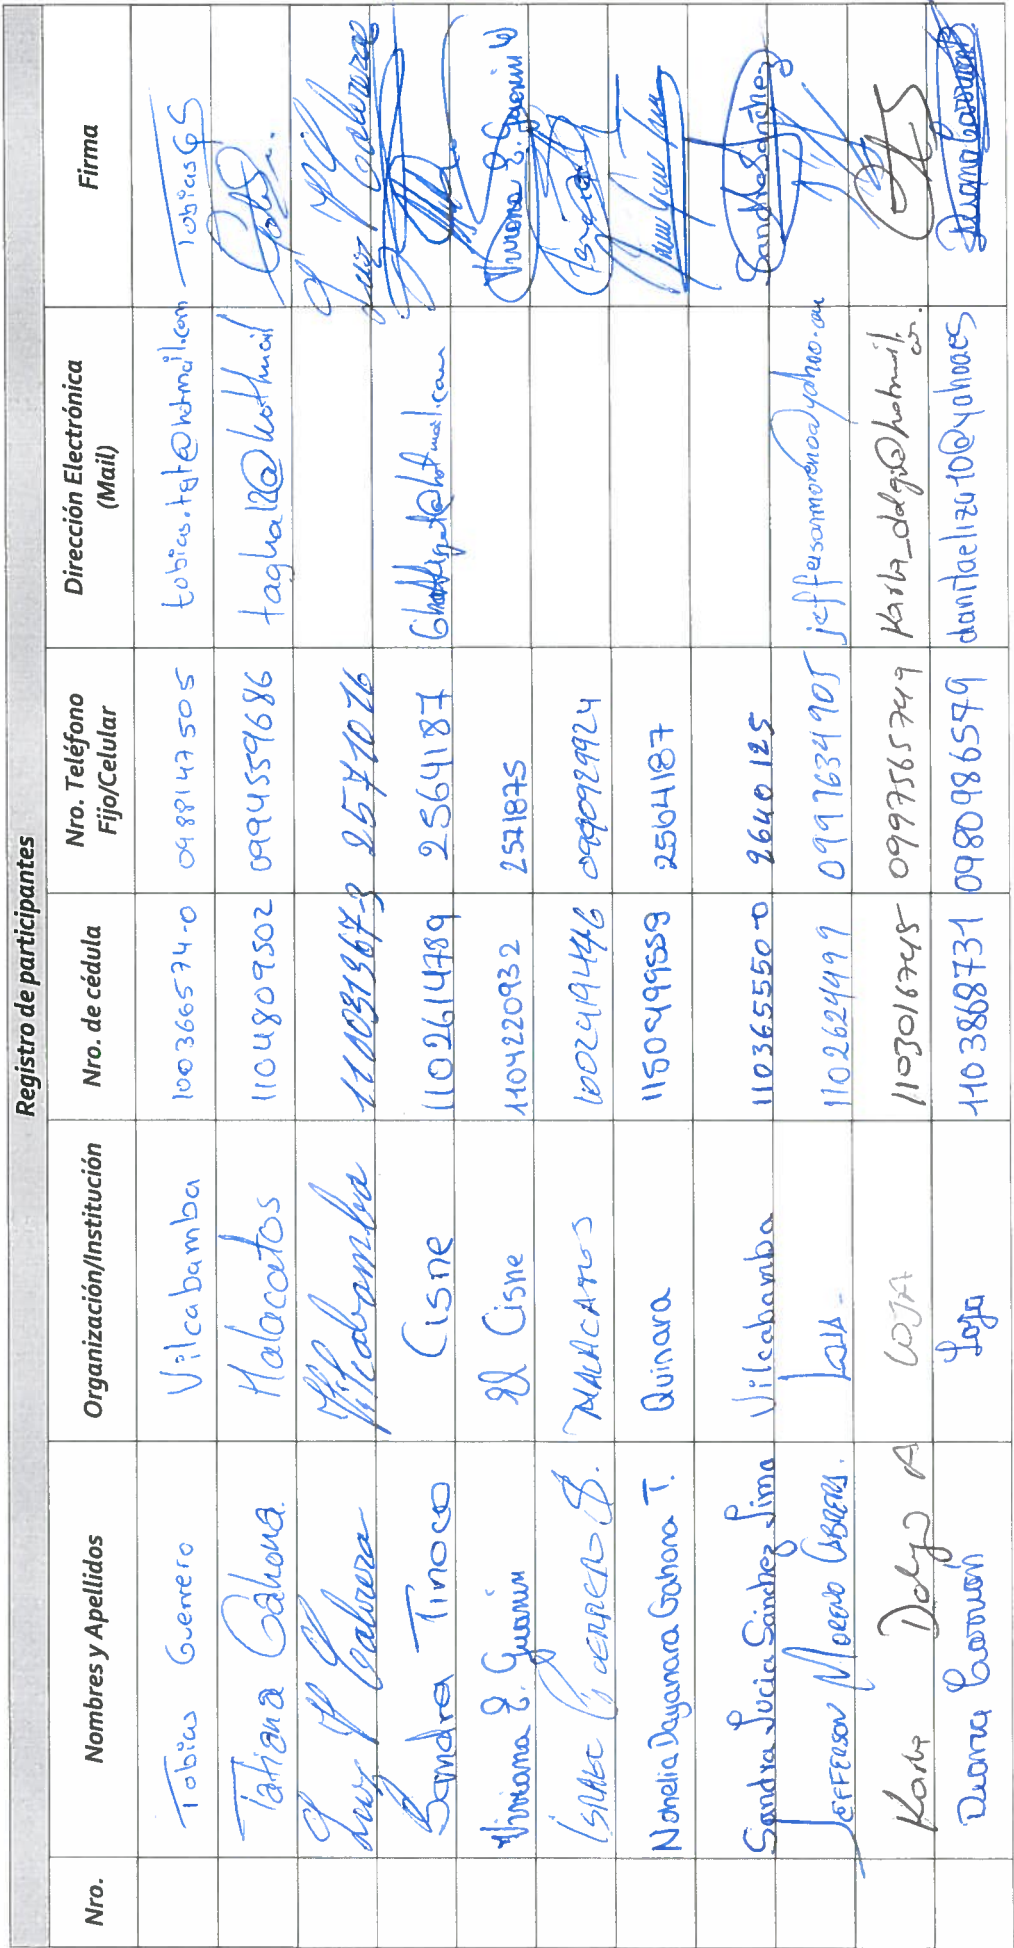 Registro de participantes
Nro. Nombres y Apellidos Organización/Institución Nro. de cédula Nro. Teléfono Fijo/Celular Dirección Electrónica (Mail) Firma
Tobias Guerrero Vilcabamba 100366574-0 0988147505 tobias.tgt@hotmail.com TobiasGS
Tatiana Gahona Malacatos 1104809502 0994559686 tagha12@hotmail
Luz M Cabrera Vilcabamba 110031367-3 2571076 Luz M Cabrera
Sandra Tinoco Cisne 1102614789 2564187
Viviana E. Guamin El Cisne 1104220932 2571875 Viviana E. Guamin
ISRAEL MALACATOS 1002419446 0990929924
Nohelia Dayanara Gahona T. Quinara 1150499559 2564187
Sandra Lucia Sánchez Jima Vilcabamba 110365550-0 2640125 Sandra Sánchez
JEFFERSON MORENO CABRERA. LOJA. 1102624499 0997634905 jeffersonmoreno@yahoo.com
Karla Delgado A LOJA 1103016745 0997565749
Diana Carrión Loja 1103868731 0980986579 danitaeliza10@yahooes